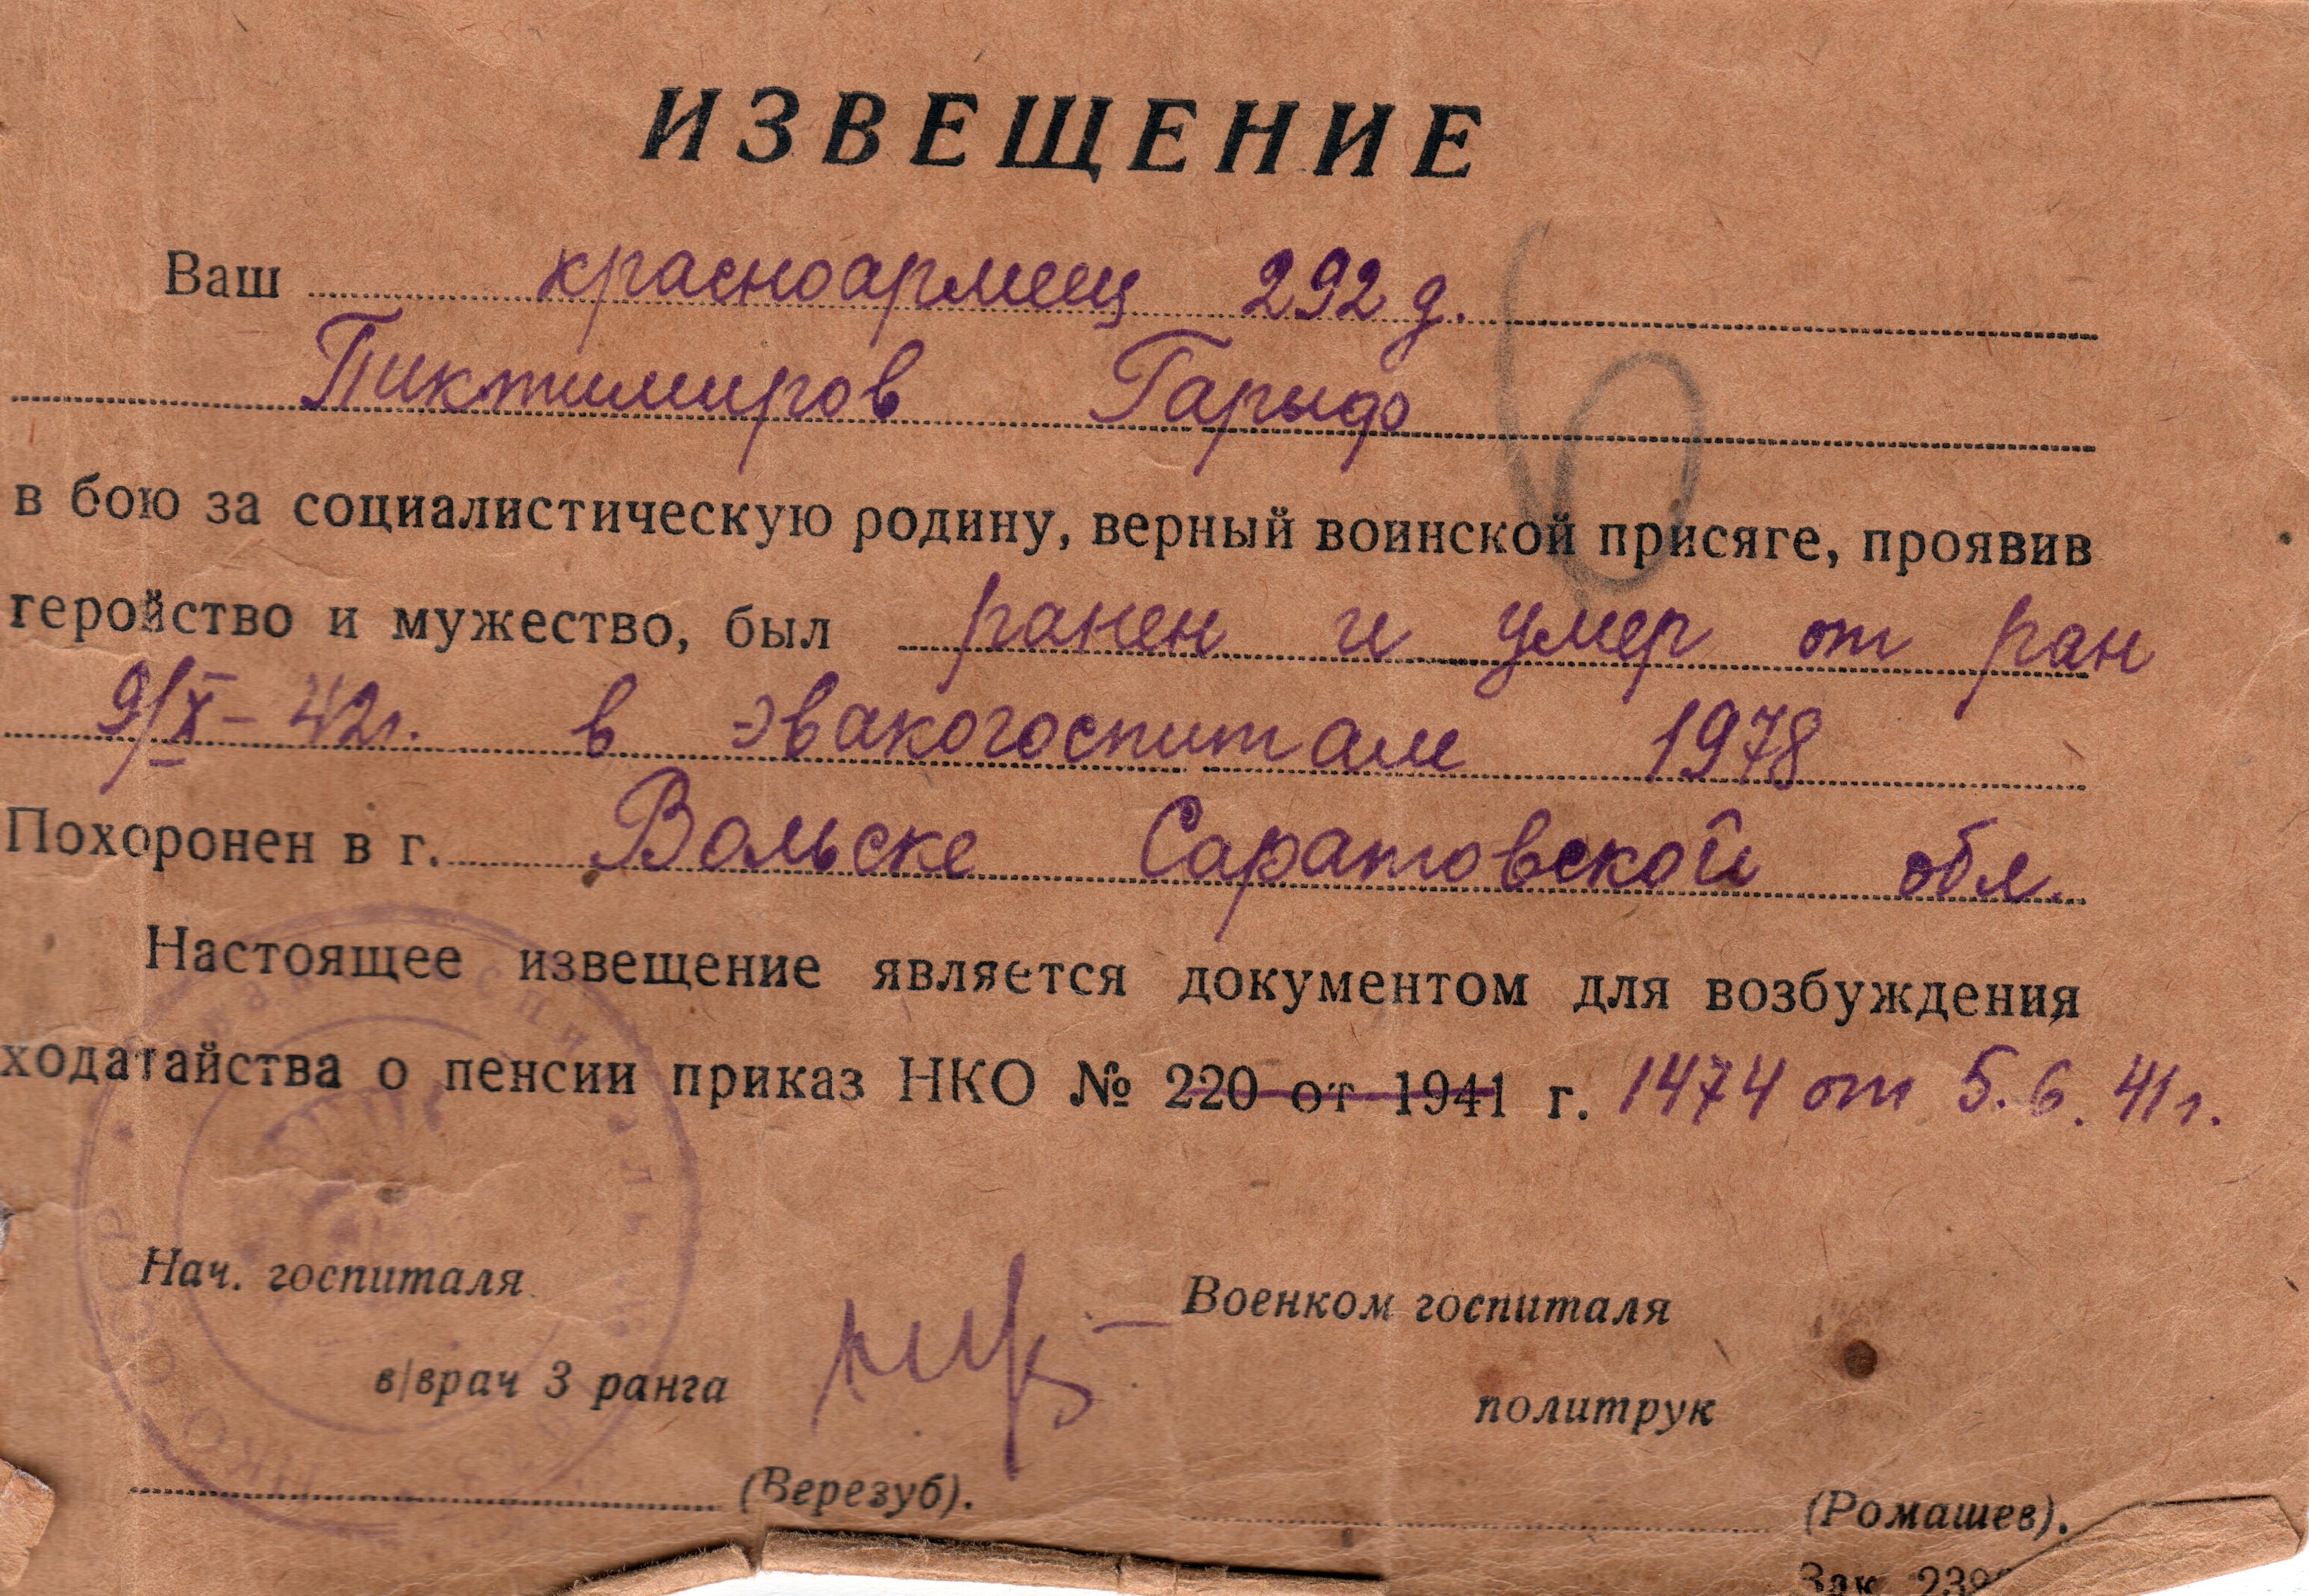 ИЗВЕЩЕНИЕ
Ваш красноармеец 292 д.
Пиктимиров Гарыф
в бою за социалистическую родину, верный воинской присяге, проявив
геройство и мужество, был ранен и умер от ран
9/X-42г. в эвакогоспитале 1978
Похоронен в г. Вольске Саратовской обл.
Настоящее извещение является документом для возбуждения
ходатайства о пенсии приказ НКО № 220 от 1941 г. 1474 от 5.6.41г.
Нач. госпиталя
Военком госпиталя
в/врач 3 ранга
политрук
(Верезуб).
(Ромашев).
Зак.